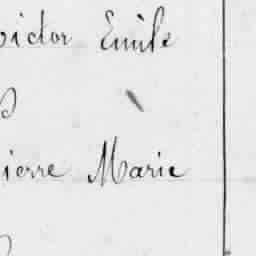 ictor Emile
ierre Marie